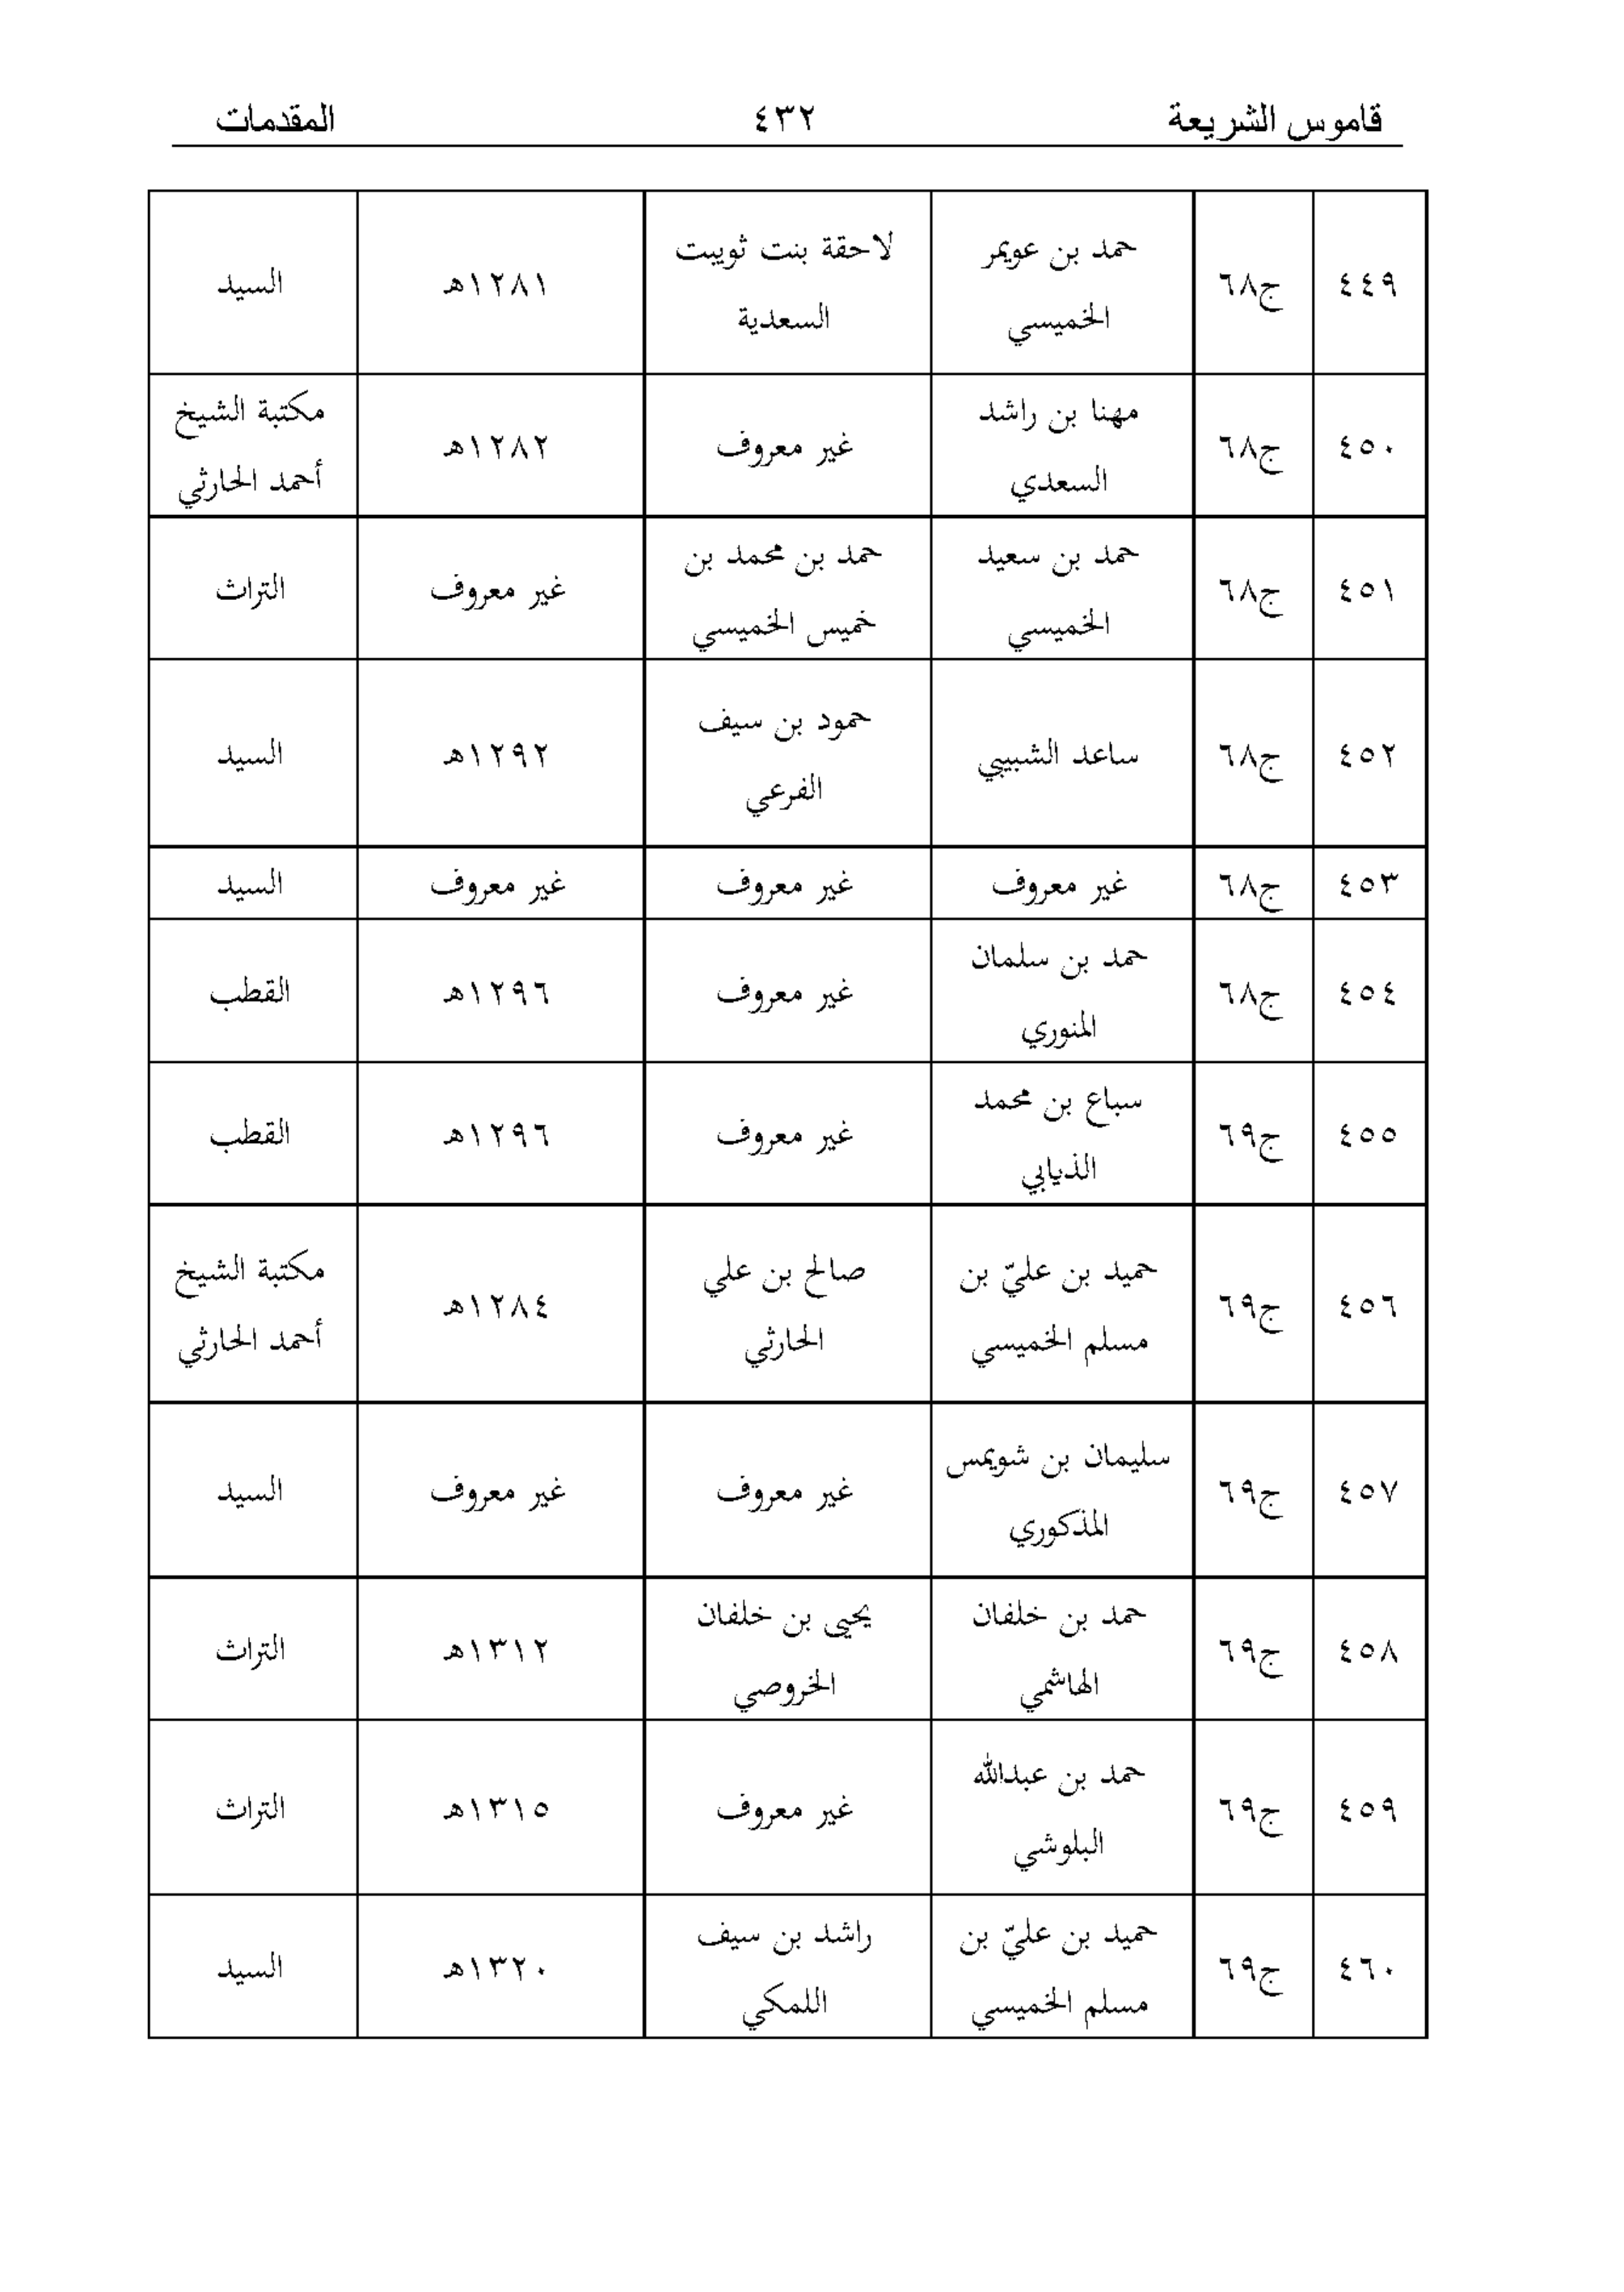 قاموس الشريعة ٤٣٢ المقدمات
٤٤٩ ج٦٨ حمد بن عويمر الخميسي لاحقة بنت ثويبت السعدية ١٢٨١هـ السيد
٤٥٠ ج٦٨ مهنا بن راشد السعدي غير معروف ١٢٨٢هـ مكتبة الشيخ أحمد الحارثي
٤٥١ ج٦٨ حمد بن سعيد الخميسي حمد بن محمد بن خميس الخميسي غير معروف التراث
٤٥٢ ج٦٨ ساعد الشبيبي حمود بن سيف الفرعي ١٢٩٢هـ السيد
٤٥٣ ج٦٨ غير معروف غير معروف غير معروف السيد
٤٥٤ ج٦٨ حمد بن سلمان المنوري غير معروف ١٢٩٦هـ القطب
٤٥٥ ج٦٩ سباع بن محمد الذيابي غير معروف ١٢٩٦هـ القطب
٤٥٦ ج٦٩ حميد بن عليّ بن مسلم الخميسي صالح بن علي الحارثي ١٢٨٤هـ مكتبة الشيخ أحمد الحارثي
٤٥٧ ج٦٩ سليمان بن شويمس المذكوري غير معروف غير معروف السيد
٤٥٨ ج٦٩ حمد بن خلفان الهاشمي يحيى بن خلفان الخروصي ١٣١٢هـ التراث
٤٥٩ ج٦٩ حمد بن عبدالله البلوشي غير معروف ١٣١٥هـ التراث
٤٦٠ ج٦٩ حميد بن عليّ بن مسلم الخميسي راشد بن سيف اللمكي ١٣٢٠هـ السيد